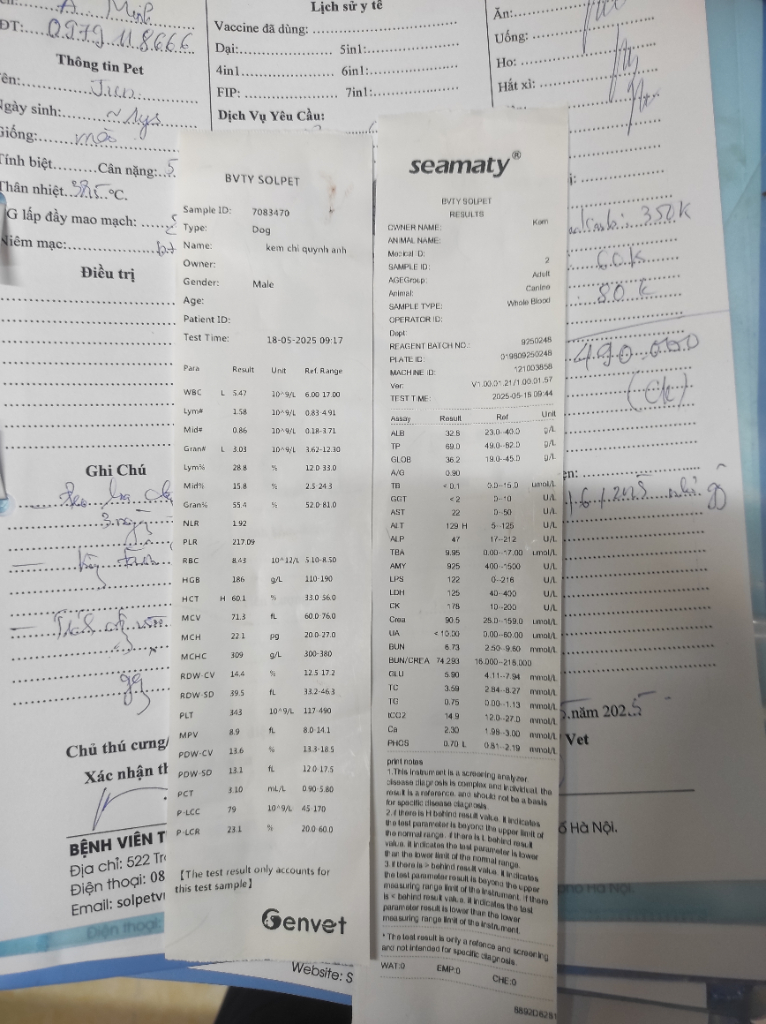 A. Minh
ĐT: 0979118666
Thông tin Pet
Jun
Ngày sinh:
Giống:
Tính biệt.......Cân nặng: 5
Thân nhiệt 38.5 °C.
lấp đầy mao mạch:
Niêm mạc:
Điều trị
Ghi Chú
3 ngày
Chủ thú cưng/
Xác nhận
BỆNH VIỆN
Địa chỉ: 522
Điện thoại: 08
Email:
Điện thoại
Website: S
Lịch sử y tế
Vaccine đã dùng:
Dại: 5in1:
4in1 6in1:
FIP: 7in1:
Dịch Vụ Yêu Cầu:
Ăn:
Uống:
Ho:
Hắt xì:
350K
60K
80K
490.000
(Ck)
năm 2025
Vet
Hà Nội.
BVTY SOLPET
Sample ID: 7083470
Type: Dog
Name: kem chi quynh anh
Owner:
Gender: Male
Age:
Patient ID:
Test Time: 18-05-2025 09:17
Para Result Unit Ref Range
WBC L 5.47 10^9/L 6.00 17.00
Lym# 1.58 10^9/L 0.83-4.91
Mid# 0.86 10^9/L 0.18-3.71
Gran# L 3.03 10^9/L 3.62-12.30
Lym% 28.8 % 12.0 33.0
Mid% 15.8 % 2.5-24.3
Gran% 55.4 % 52.0-81.0
NLR 1.92
PLR 217.09
RBC 8.43 10^12/L 5.10-8.50
HGB 186 g/L 110-190
HCT H 60.1 % 33.0 56.0
MCV 71.3 fL 60.0 76.0
MCH 22.1 pg 20.0-27.0
MCHC 309 g/L 300-380
RDW-CV 14.4 % 12.5 17.2
RDW-SD 39.5 fL 33.2-46.3
PLT 343 10^9/L 117-490
MPV 8.9 fL 8.0-14.1
PDW-CV 13.6 % 13.3-18.5
PDW-SD 13.1 fL 12.0-17.5
PCT 3.10 mL/L 0.90-5.80
P-LCC 79 10^9/L 45-170
P-LCR 23.1 % 20.0-60.0
【The test result only accounts for
this test sample】
Genvet
seamaty®
BVTY SOLPET
RESULTS
OWNER NAME: Kem
ANIMAL NAME:
Medical ID:
SAMPLE ID: 2
AGEGroup: Adult
Animal: Canine
SAMPLE TYPE: Whole Blood
OPERATOR ID:
Dept:
REAGENT BATCH NO.: 9250248
PLATE ID: 019809250248
MACHINE ID: 121003658
Ver: V1.00.01.21/1.00.01.57
TEST TIME: 2025-05-18 09:44
Assay Result Ref Unit
ALB 32.8 23.0-40.0 g/L
TP 69.0 49.0-82.0 g/L
GLOB 36.2 19.0-45.0 g/L
A/G 0.90
TB <0.1 0.0-15.0 umol/L
GGT <2 0-10 U/L
AST 22 0-50 U/L
ALT 129 H 5-125 U/L
ALP 47 17-212 U/L
TBA 9.95 0.00-17.00 umol/L
AMY 925 400-1500 U/L
LPS 122 0-216 U/L
LDH 125 40-400 U/L
CK 178 10-200 U/L
Crea 90.5 28.0-159.0 umol/L
UA <10.00 0.00-60.00 umol/L
BUN 6.73 2.50-9.60 mmol/L
BUN/CREA 74.293 16.000-218.000
GLU 5.90 4.11-7.94 mmol/L
TC 3.59 2.84-8.27 mmol/L
TG 0.75 0.00-1.13 mmol/L
tCO2 14.9 12.0-27.0 mmol/L
Ca 2.30 1.98-3.00 mmol/L
PHOS 0.70 L 0.81-2.19 mmol/L
print notes
1.This instrument is a screening analyzer,
disease diagnosis is complex and individual, the
result is a reference, and should not be a basis
for specific disease diagnosis.
2.if there is H behind result value, it indicates
the test parameter is beyond the upper limit of
the normal range, if there is L behind result
value, it indicates the test parameter is lower
than the lower limit of the normal range.
3.if there is > behind result value, it indicates
the test parameter is beyond the upper
measuring range limit of the instrument, if there
is < behind result value, it indicates the test
parameter result is lower than the lower
measuring range limit of the instrument.
* The test result is only a refence and screening
and not intended for specific diagnosis.
WAT:0 EMP:0 CHE:0